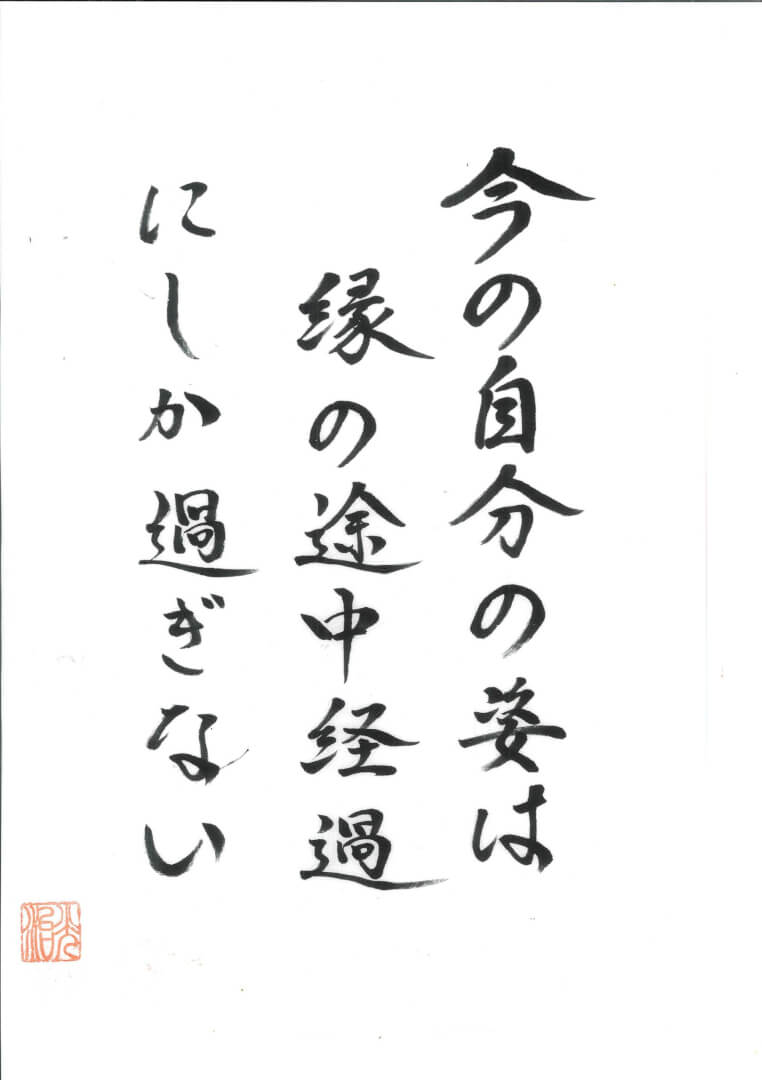 今の自分の姿は
縁の途中経過
にしか過ぎない